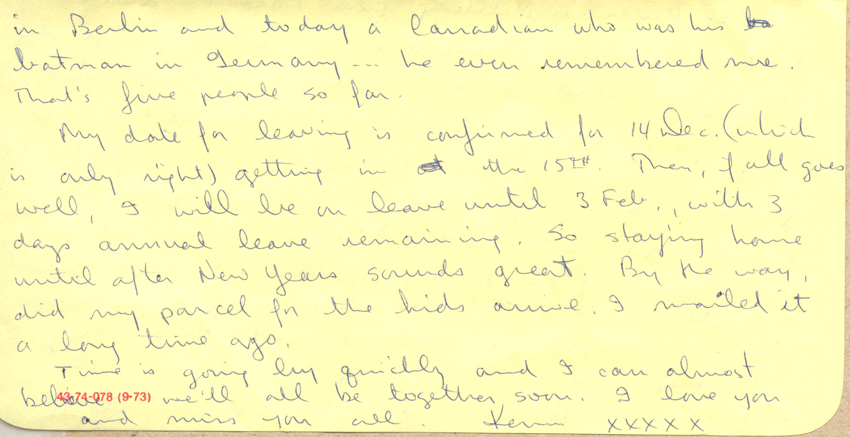 in Berlin and today a Canadian who was his
batman in Germany --- he even remembered me.
That's five people so far.
My date for leaving is confirmed for 14 Dec. (which
is only right) getting in the 15TH. Then, if all goes
well, I will be on leave until 3 Feb., with 3
days annual leave remaining. So staying home
until after New Years sounds great. By the way,
did my parcel for the kids arrive. I mailed it
a long time ago.
Time is going by quickly and I can almost
believe we'll all be together soon. I love you
43-74-078 (9-73)
and miss you all. Kevin xxxxx